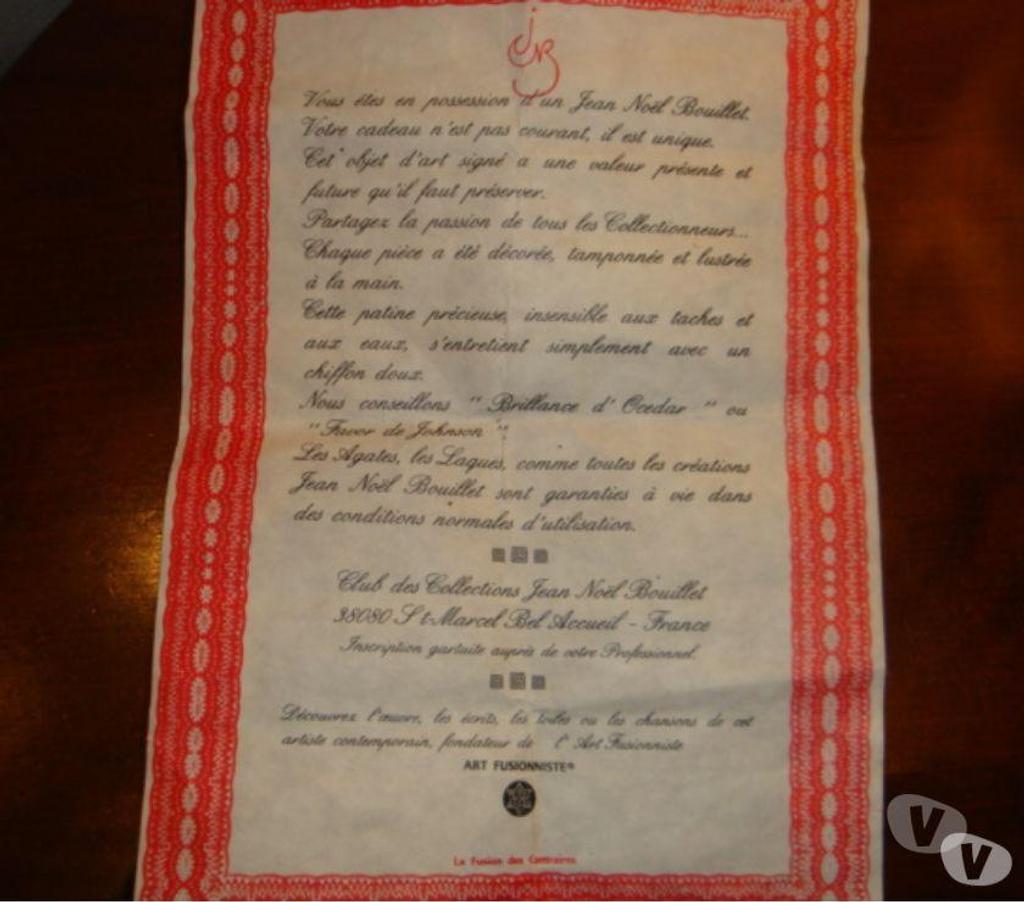 JNB
Vous êtes en possession d'un Jean Noël Bouillet.
Votre cadeau n'est pas courant, il est unique.
Cet objet d'art signé a une valeur présente et
future qu'il faut préserver.
Partagez la passion de tous les Collectionneurs...
Chaque pièce a été décorée, tamponnée et lustrée
à la main.
Cette patine précieuse, insensible aux taches et
aux eaux, s'entretient simplement avec un
chiffon doux.
Nous conseillons " Brillance d' Ocedar " ou
" Favor de Johnson "
Les Agates, les Laques, comme toutes les créations
Jean Noël Bouillet sont garanties à vie dans
des conditions normales d'utilisation.
Club des Collections Jean Noël Bouillet
38080 St-Marcel Bel Accueil - France
Inscription gartuite auprès de votre Professionnel.
Découvrez l'œuvre, les écrits, les toiles ou les chansons de cet
artiste contemporain, fondateur de l' Art Fusionniste
ART FUSIONNISTE®
La Fusion des Contraires
VV